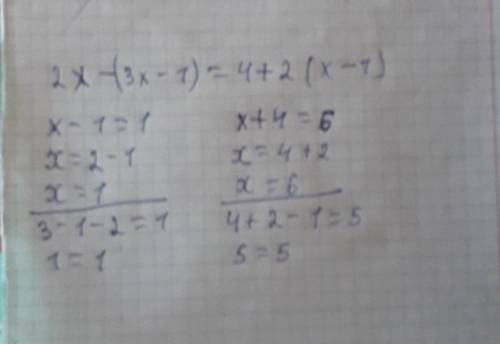 2x-(3x-1)=4+2(x-1)
x-1=1
x=2-1
x=1
3-1-2=1
1=1
x+4=6
x=4+2
x=6
4+2-1=5
5=5